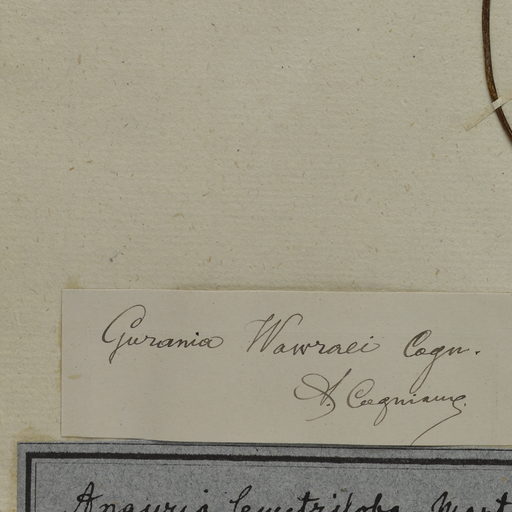 Gurania Wawraei Cogn.
A. Cogniaux.
Anguria